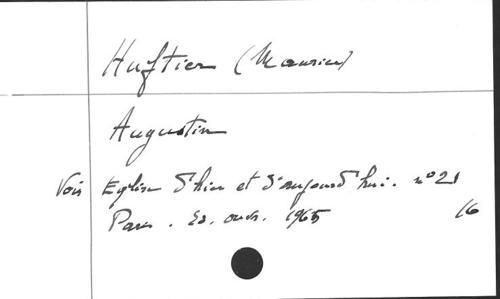 Huftier (Maurice)
Augustin
Voir Eglise d'hier et d'aujourd'hui. n°21
Paris. Ed. ouvr. 1965 16